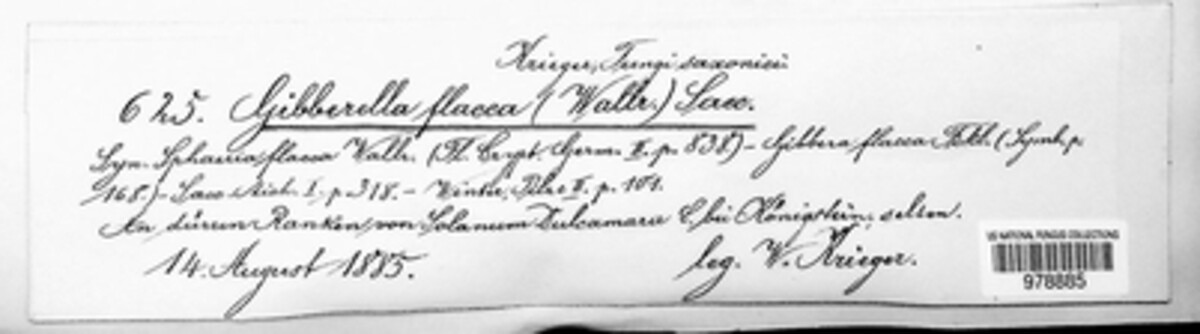 Krieger, Fungi saxonici
625. Gibberella flacca (Wallr.) Sacc.
Syn. Sphaeria flacca Wallr. (Fl. Crypt. Germ. II. p. 838) - Gibbera flacca Fckl. (Symb. p.
168.) - Sacc. Mich. I. p. 318. - Winter, Pilze II. p. 101.
An dürren Ranken von Solanum Dulcamara L. bei Königstein; selten.
14. August 1885.
leg. W. Krieger.
US NATIONAL FUNGUS COLLECTIONS
978885